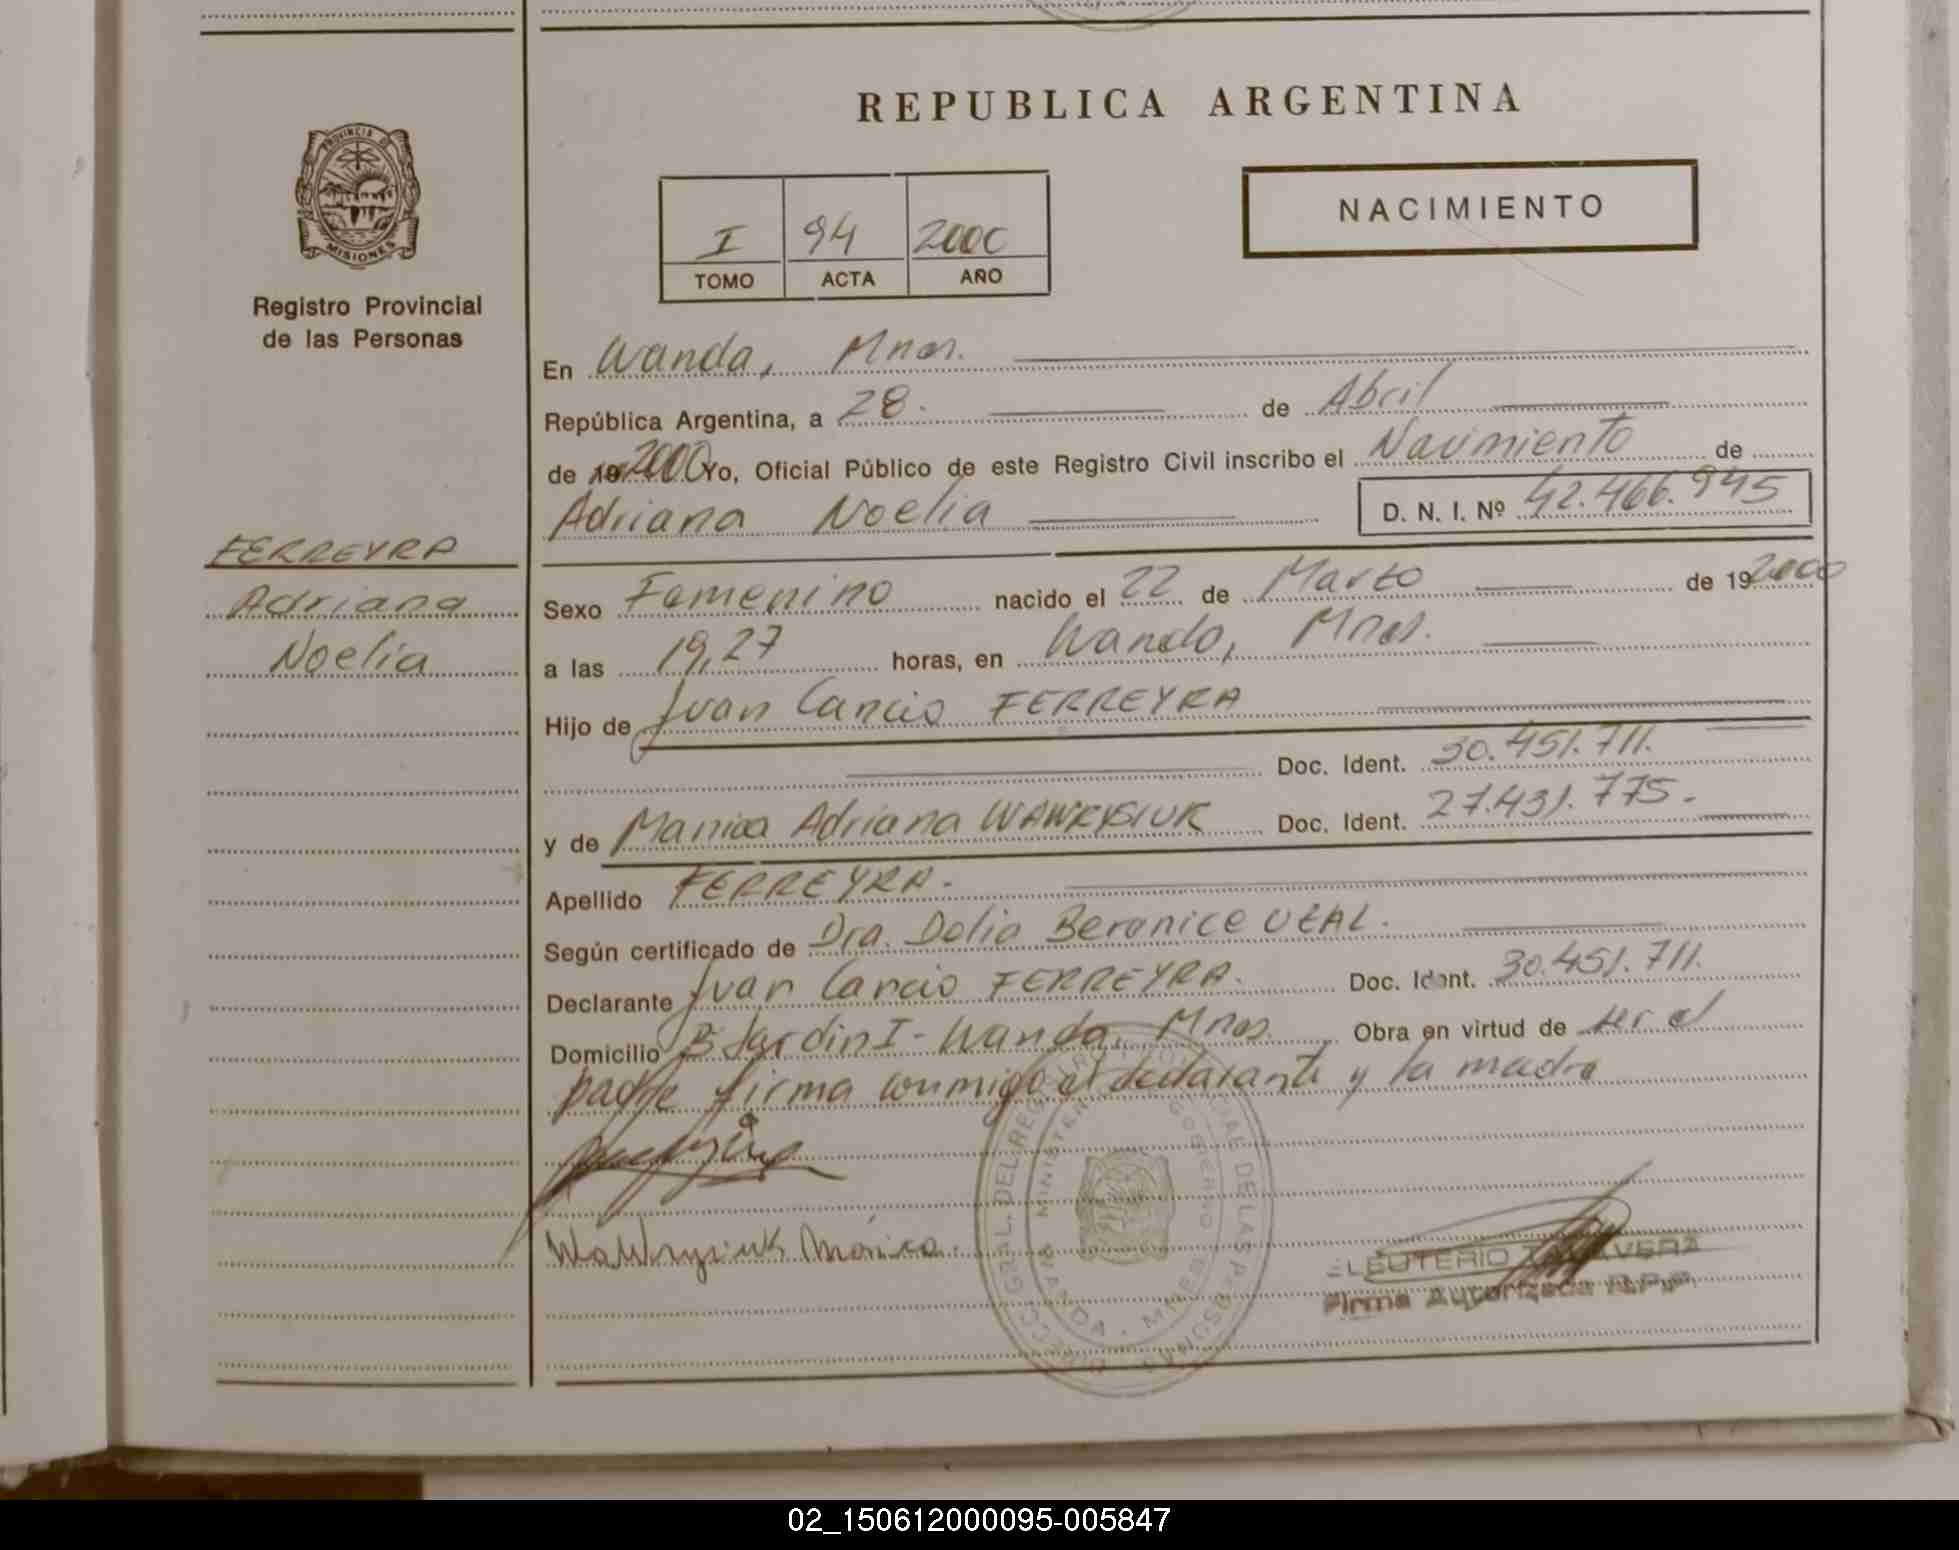 REPUBLICA ARGENTINA
NACIMIENTO
I 94 2000
TOMO ACTA AÑO
PROVINCIA DE
MISIONES
Registro Provincial
de las Personas
En Wanda, Mnes.
República Argentina, a 28. de Abril
de 19 2000 Yo, Oficial Público de este Registro Civil inscribo el Nacimiento de
Adriana Noelia D. N. I. Nº 42.466.945
FERREYRA
Adriana
Noelia
Sexo Femenino nacido el 22 de Marzo de 19 2000
a las 19,27 horas, en Wanda, Mnes.
Hijo de Juan Cancio FERREYRA
Doc. Ident. 30.451.711.
y de Monica Adriana WAWRYSIUK Doc. Ident. 27.431.775.
Apellido FERREYRA.
Según certificado de Dra. Delia Beronice VEAL.
Declarante Juan Cancio FERREYRA. Doc. Ident. 30.451.711.
Domicilio B Jardin I - Wanda, Mnes. Obra en virtud de ser el
padre firma conmigo el declarante y la madre
Wawrysiuk Mónica.
DIRECC. GRAL. DEL REGISTRO PROVINCIAL DE LAS PERSONAS
MINISTERIO GOBIERNO
WANDA - MNES
ELEUTERIO TALAVERA
Firma Autorizada R.P.P.
02_150612000095-005847